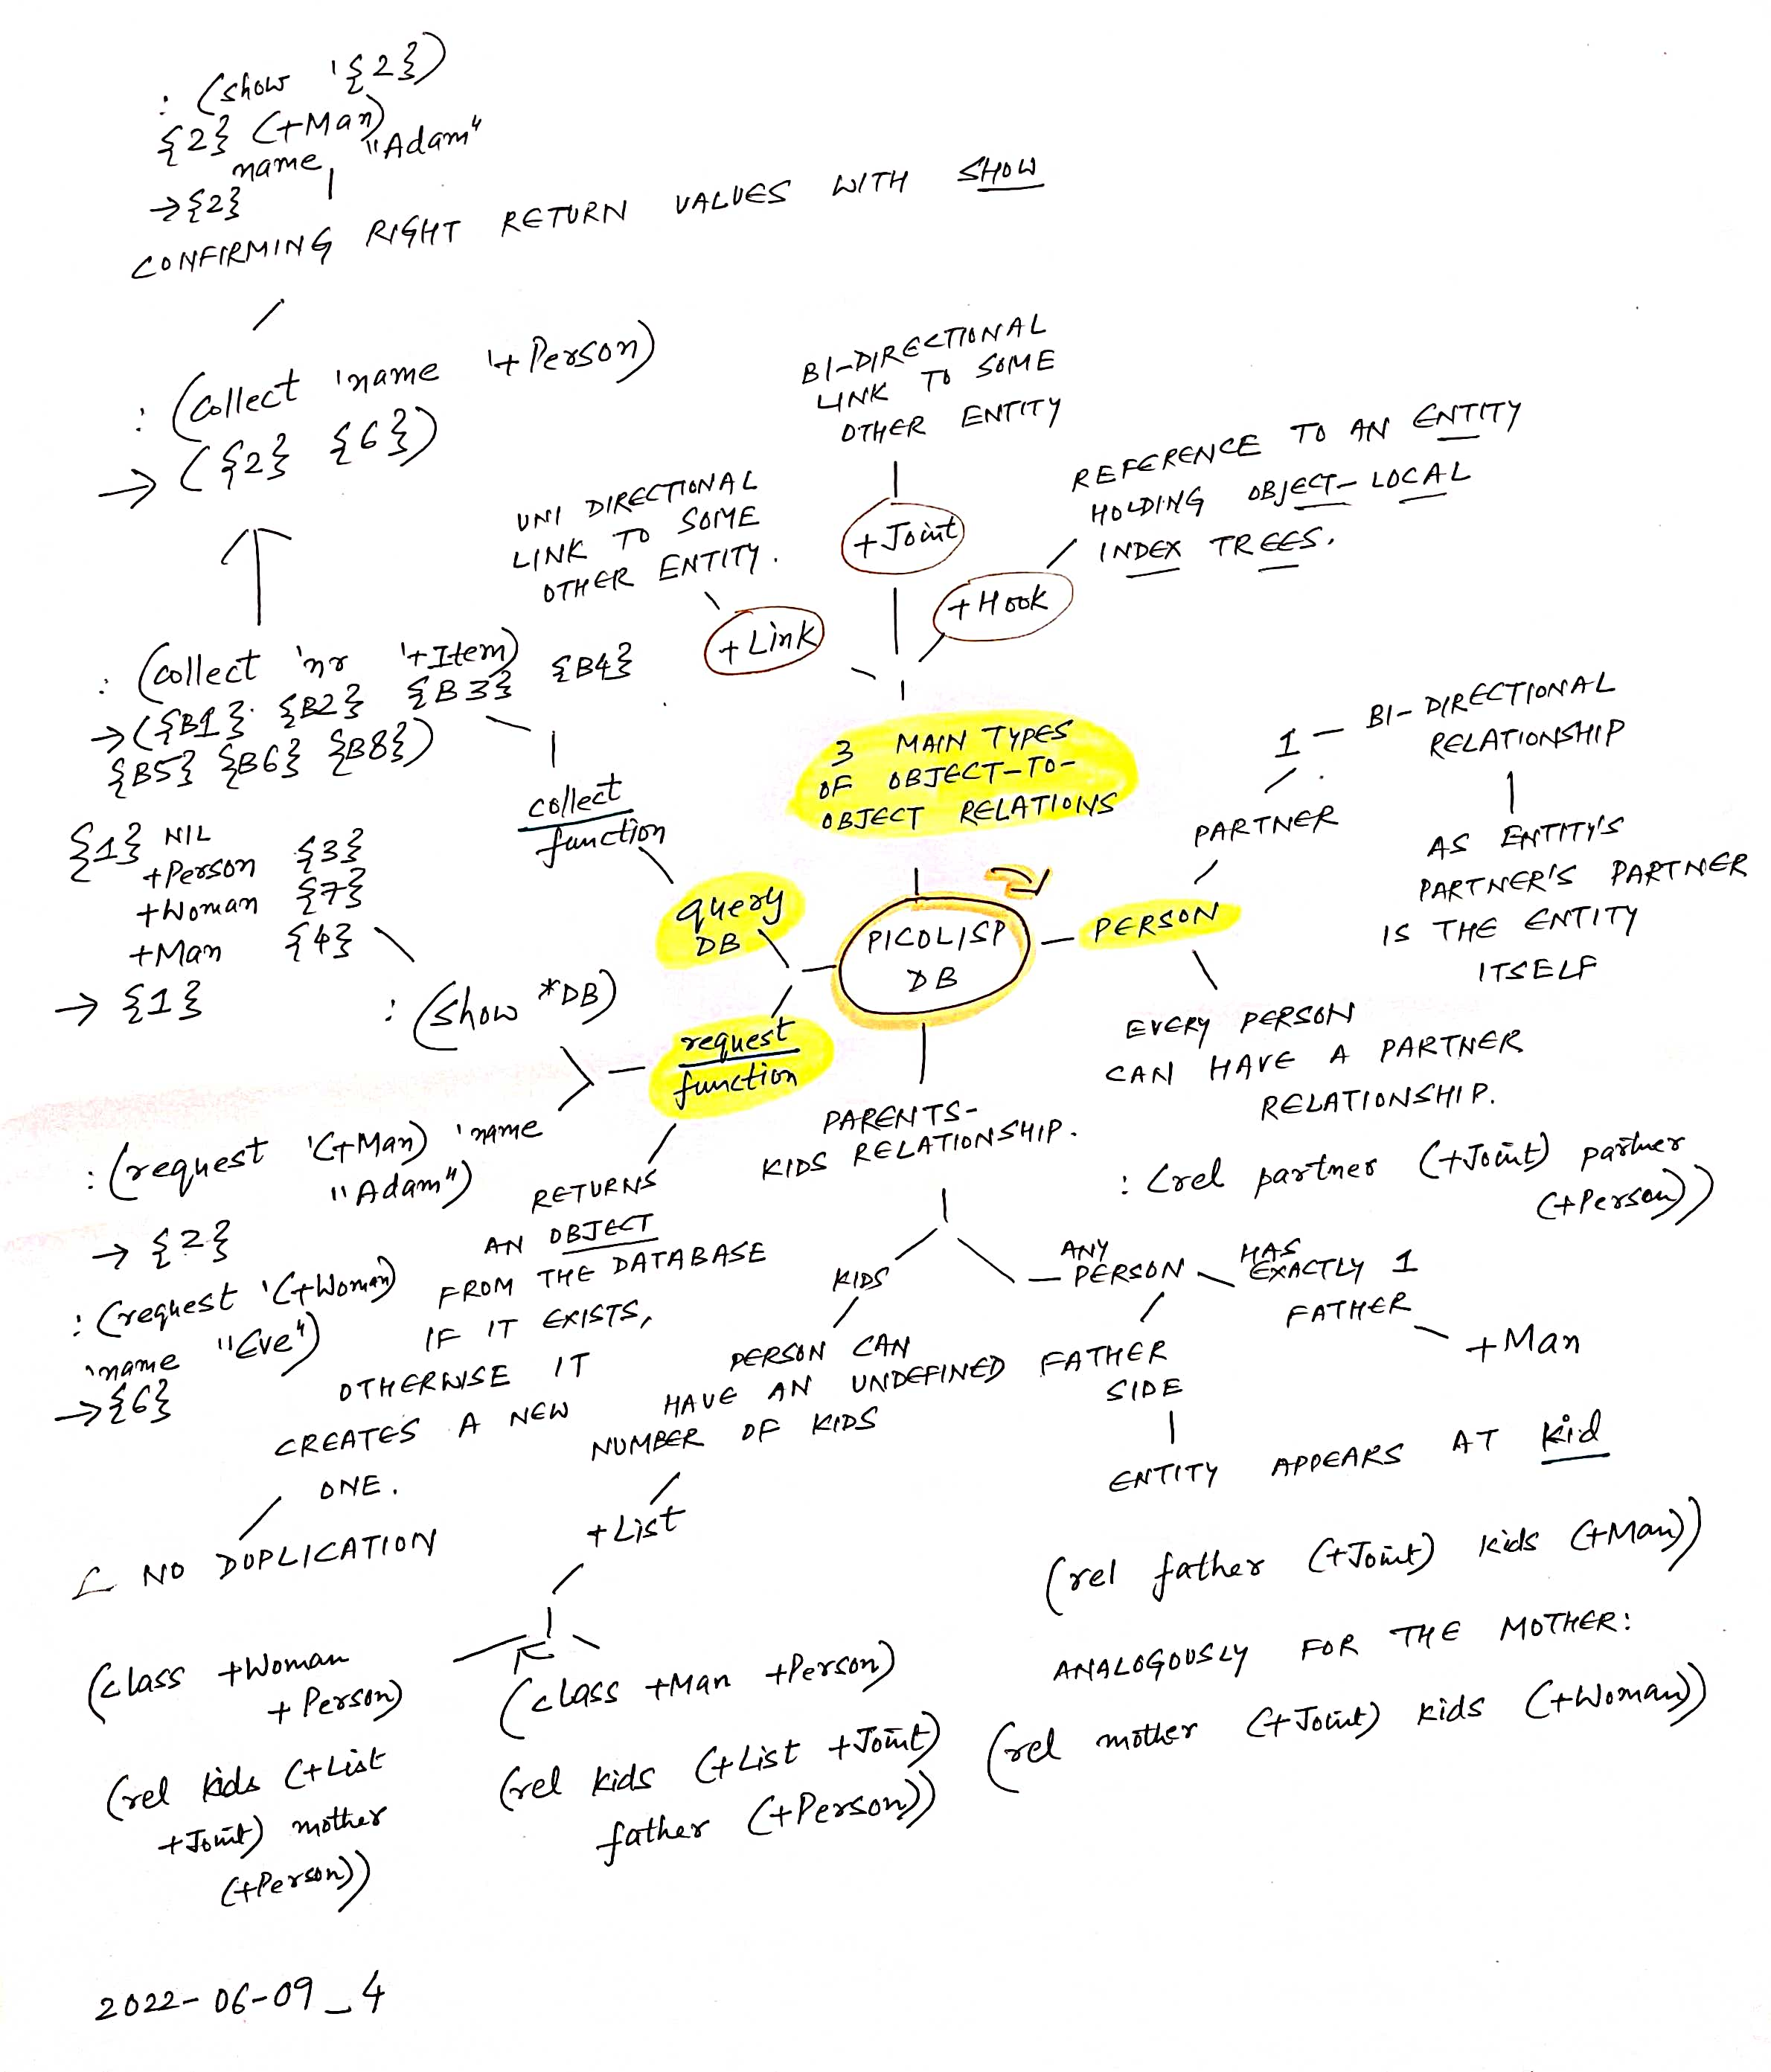 : (show '{2})
{2} (+Man)
name "Adam"
→ {2}
CONFIRMING RIGHT RETURN VALUES WITH SHOW
: (collect 'name '+Person)
→ ({2} {6})
: (collect 'nr '+Item)
→ ({B1} {B2} {B3} {B4}
{B5} {B6} {B8})
collect
function
query
DB
UNI DIRECTIONAL
LINK TO SOME
OTHER ENTITY.
+Link
BI-DIRECTIONAL
LINK TO SOME
OTHER ENTITY
+Joint
REFERENCE TO AN ENTITY
HOLDING OBJECT-LOCAL
INDEX TREES.
+Hook
3 MAIN TYPES
OF OBJECT-TO-
OBJECT RELATIONS
PICOLISP
DB
PERSON
PARTNER
1 - BI-DIRECTIONAL
RELATIONSHIP
AS ENTITY'S
PARTNER'S PARTNER
IS THE ENTITY
ITSELF
EVERY PERSON
CAN HAVE A PARTNER
RELATIONSHIP.
: (rel partner (+Joint) partner
(+Person))
{1} NIL
+Person {3}
+Woman {7}
+Man {4}
→ {1}
: (show *DB)
request
function
: (request '(+Man) 'name
"Adam")
→ {2}
: (request '(+Woman)
'name "Eve")
→ {6}
RETURNS
AN OBJECT
FROM THE DATABASE
IF IT EXISTS,
OTHERWISE IT
CREATES A NEW
ONE.
NO DUPLICATION
PARENTS-
KIDS RELATIONSHIP.
KIDS
PERSON CAN
HAVE AN UNDEFINED
NUMBER OF KIDS
+List
(class +Woman
+Person)
(rel kids (+List
+Joint) mother
(+Person))
(class +Man +Person)
(rel kids (+List +Joint)
father (+Person))
ANY
PERSON
HAS
EXACTLY 1
FATHER
+Man
FATHER
SIDE
ENTITY APPEARS AT kid
(rel father (+Joint) kids (+Man))
ANALOGOUSLY FOR THE MOTHER:
(rel mother (+Joint) kids (+Woman))
2022-06-09_4